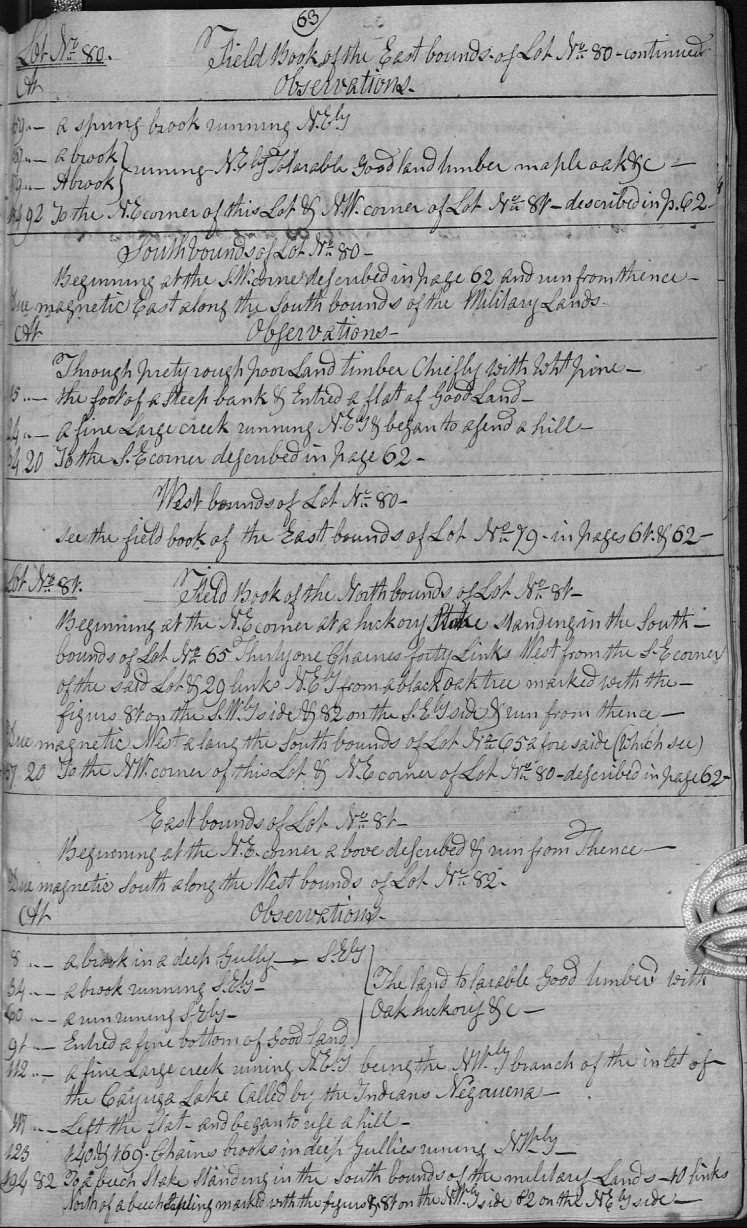 63
Lot No. 80. Field Book of the East bounds of Lot No. 80 - continued
At Observations.
59 „ — a spring brook running N.Ely
67 „ — a brook } running N.Ely Tolarable Good land timber maple oak &c —
79 „ — A brook
92 To the N.E corner of this Lot & N.W. corner of Lot No. 81 — described in p. 62 —
South bounds of Lot No. 80 —
Beginning at the S.W. corner described in page 62 and run from thence —
Due magnetic East along the South bounds of the Military Lands —
At Observations —
Through prety rough poor Land timber Chiefly with Wht pine —
15 „ — the foot of a Steep bank & Entred a flat of Good Land —
24 „ — a fine Large creek running N.Ely & began to asend a hill —
54 20 To the S.E corner described in page 62 —
West bounds of Lot No. 80 —
see the field book of the East bounds of Lot No. 79 - in pages 61. & 62 —
Lot No. 81. Field Book of the North bounds of Lot No. 81 —
Beginning at the N.E corner at a hickory Stake standing in the South —
bounds of Lot No. 65 Thirty one Chaines forty Links West from the S.E corner
of the said Lot & 29 links N.Ely from a black oak tree marked with the —
figurs 81 on the S.Wly side & 82 on the S.Ely side & run from thence —
Due magnetic West along the South bounds of Lot No. 65 afore saide (which see)
57 20 To the N.W. corner of this Lot & N.E corner of Lot No. 80 - described in page 62 —
East bounds of Lot No. 81 —
Beginning at the N.E. corner above described & run from Thence —
Due magnetic South along the West bounds of Lot No. 82 -
At Observations —
8 „ — a brook in a deep Gully — S.Ely
34 „ — a brook running S.Ely — } The land tolarable Good timberd with
60 „ — a run runing S.Ely — Oak hickory &c —
91 „ — Entred a fine bottom of Good land
112 „ — a fine Large creek runing N.Ely being the N.Wly branch of the inlet of
the Cayuga Lake Called by the Indians Negauena —
117 „ — Left the flat - and began to rise a hill —
123 140 & 169 - Chains brooks in deep Gullies runing N.Wly —
194 82 To a beech Stake Standing in the South bounds of the military Lands — 10 links
North of a beech Sapling marked with the figurs 81 on the N.Wly side 82 on the N.Ely side —